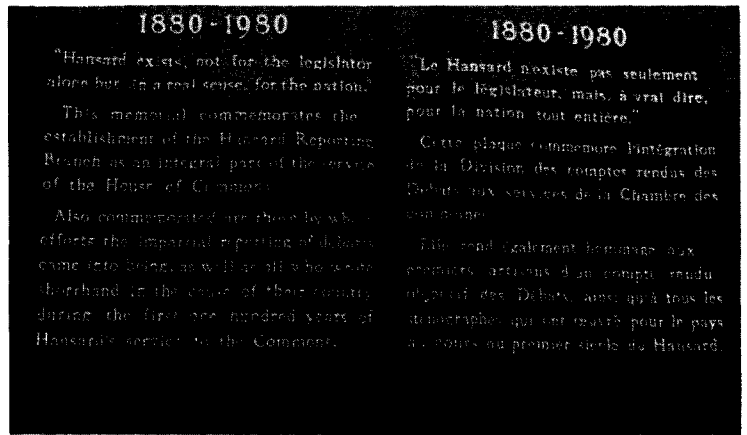 1880-1980
"Hansard exists, not for the legislator
alone but, in a real sense, for the nation."
This memorial commemorates the
establishment of the Hansard Reporting
Branch as an integral part of the service
of the House of Commons.
Also commemorated are those by whose
efforts the impartial reporting of debates
came into being, as well as all who wrote
shorthand in the cause of their country
during the first one hundred years of
Hansard's service to the Commons.
1880-1980
"Le Hansard n'existe pas seulement
pour le législateur, mais, à vrai dire,
pour la nation tout entière."
Cette plaque commémore l'intégration
de la Division des comptes rendus des
Débats aux services de la Chambre des
communes.
Elle rend également hommage aux
premiers artisans d'un compte rendu
objectif des Débats, ainsi qu'à tous les
sténographes qui ont œuvré pour le pays
au cours du premier siècle du Hansard.